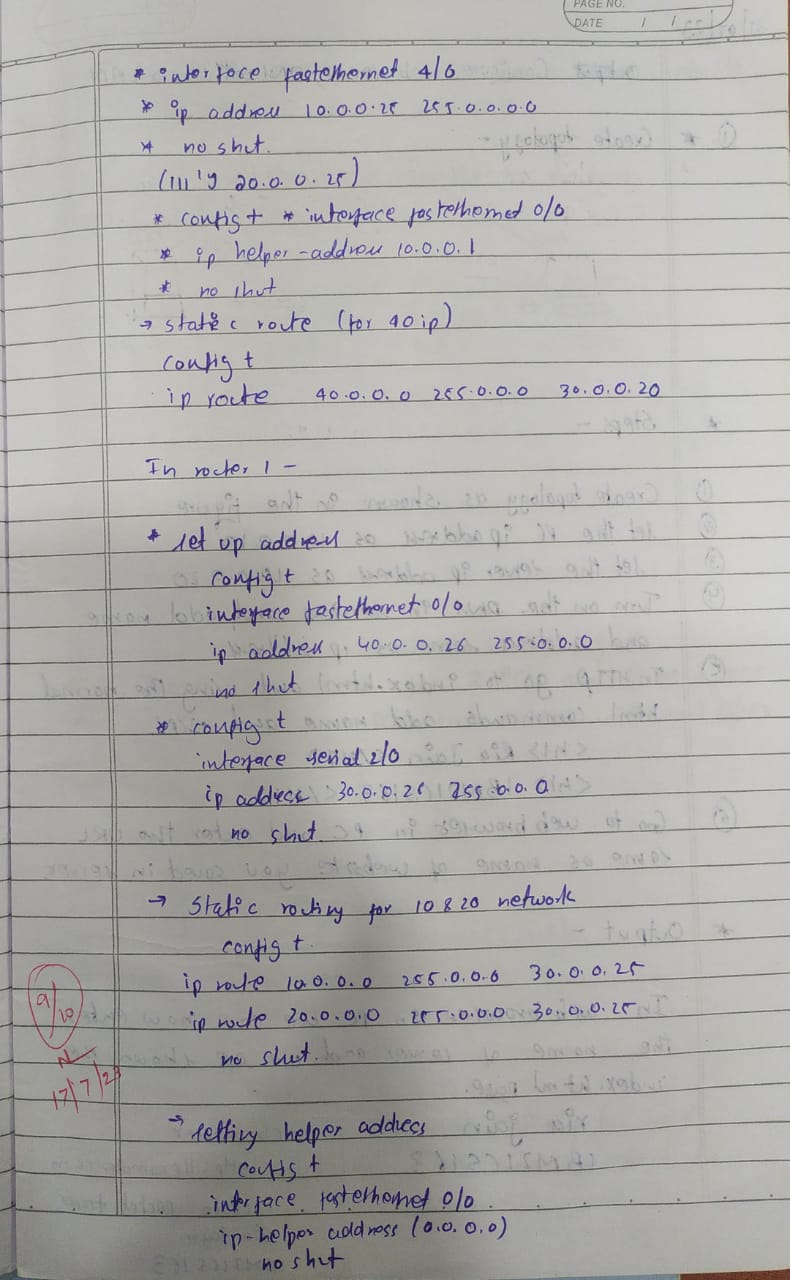 PAGE NO.
DATE / /
* interface fastethernet 4/0
* ip address 10.0.0.25 255.0.0.0.0
* no shut.
(lll'y 20.0.0.25)
* config t * interface fastethernet 0/0
* ip helper-address 10.0.0.1
* no shut
→ static route (for 40 ip)
config t
ip route 40.0.0.0 255.0.0.0 30.0.0.20
In router 1 -
* set up address
config t
interface fastethernet 0/0
ip address 40.0.0.26 255.0.0.0
no shut
* config t
interface serial 2/0
ip address 30.0.0.26 255.0.0.0
no shut.
→ Static routing for 10 & 20 network
config t.
ip route 10.0.0.0 255.0.0.0 30.0.0.25
ip route 20.0.0.0 255.0.0.0 30.0.0.25
no shut.
9/10
17/7/23
→ setting helper address
config t
interface fastethernet 0/0
ip-helper address (0.0.0.0)
no shut